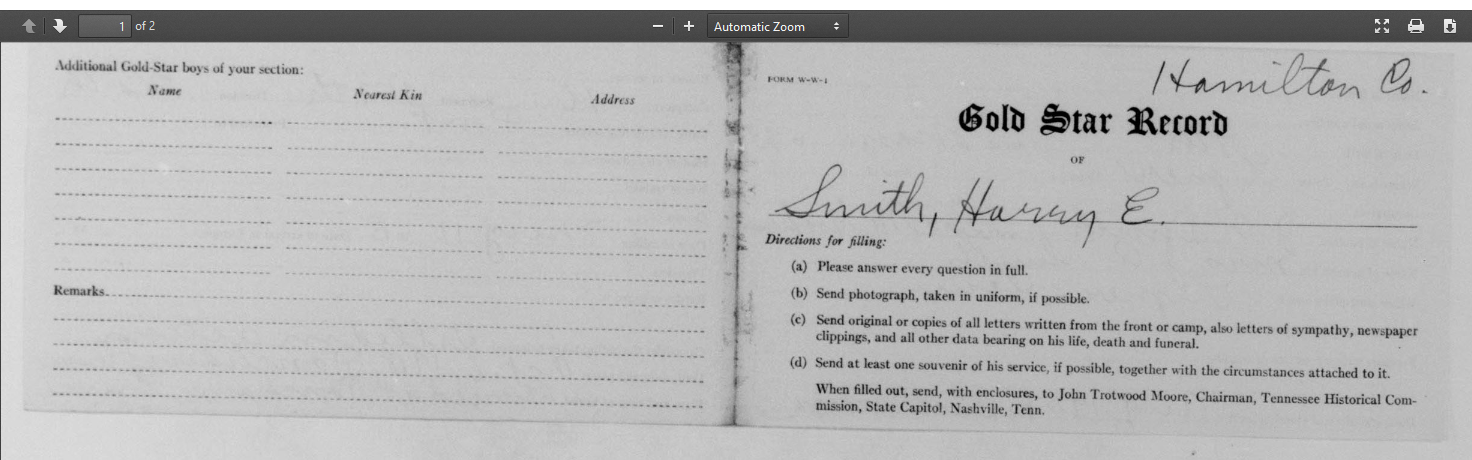 1 of 2
Automatic Zoom
Additional Gold-Star boys of your section:
Name Nearest Kin Address
Remarks
FORM W-W-1
Hamilton Co.
Gold Star Record
OF
Smith, Harry E.
Directions for filling:
(a) Please answer every question in full.
(b) Send photograph, taken in uniform, if possible.
(c) Send original or copies of all letters written from the front or camp, also letters of sympathy, newspaper
clippings, and all other data bearing on his life, death and funeral.
(d) Send at least one souvenir of his service, if possible, together with the circumstances attached to it.
When filled out, send, with enclosures, to John Trotwood Moore, Chairman, Tennessee Historical Com-
mission, State Capitol, Nashville, Tenn.